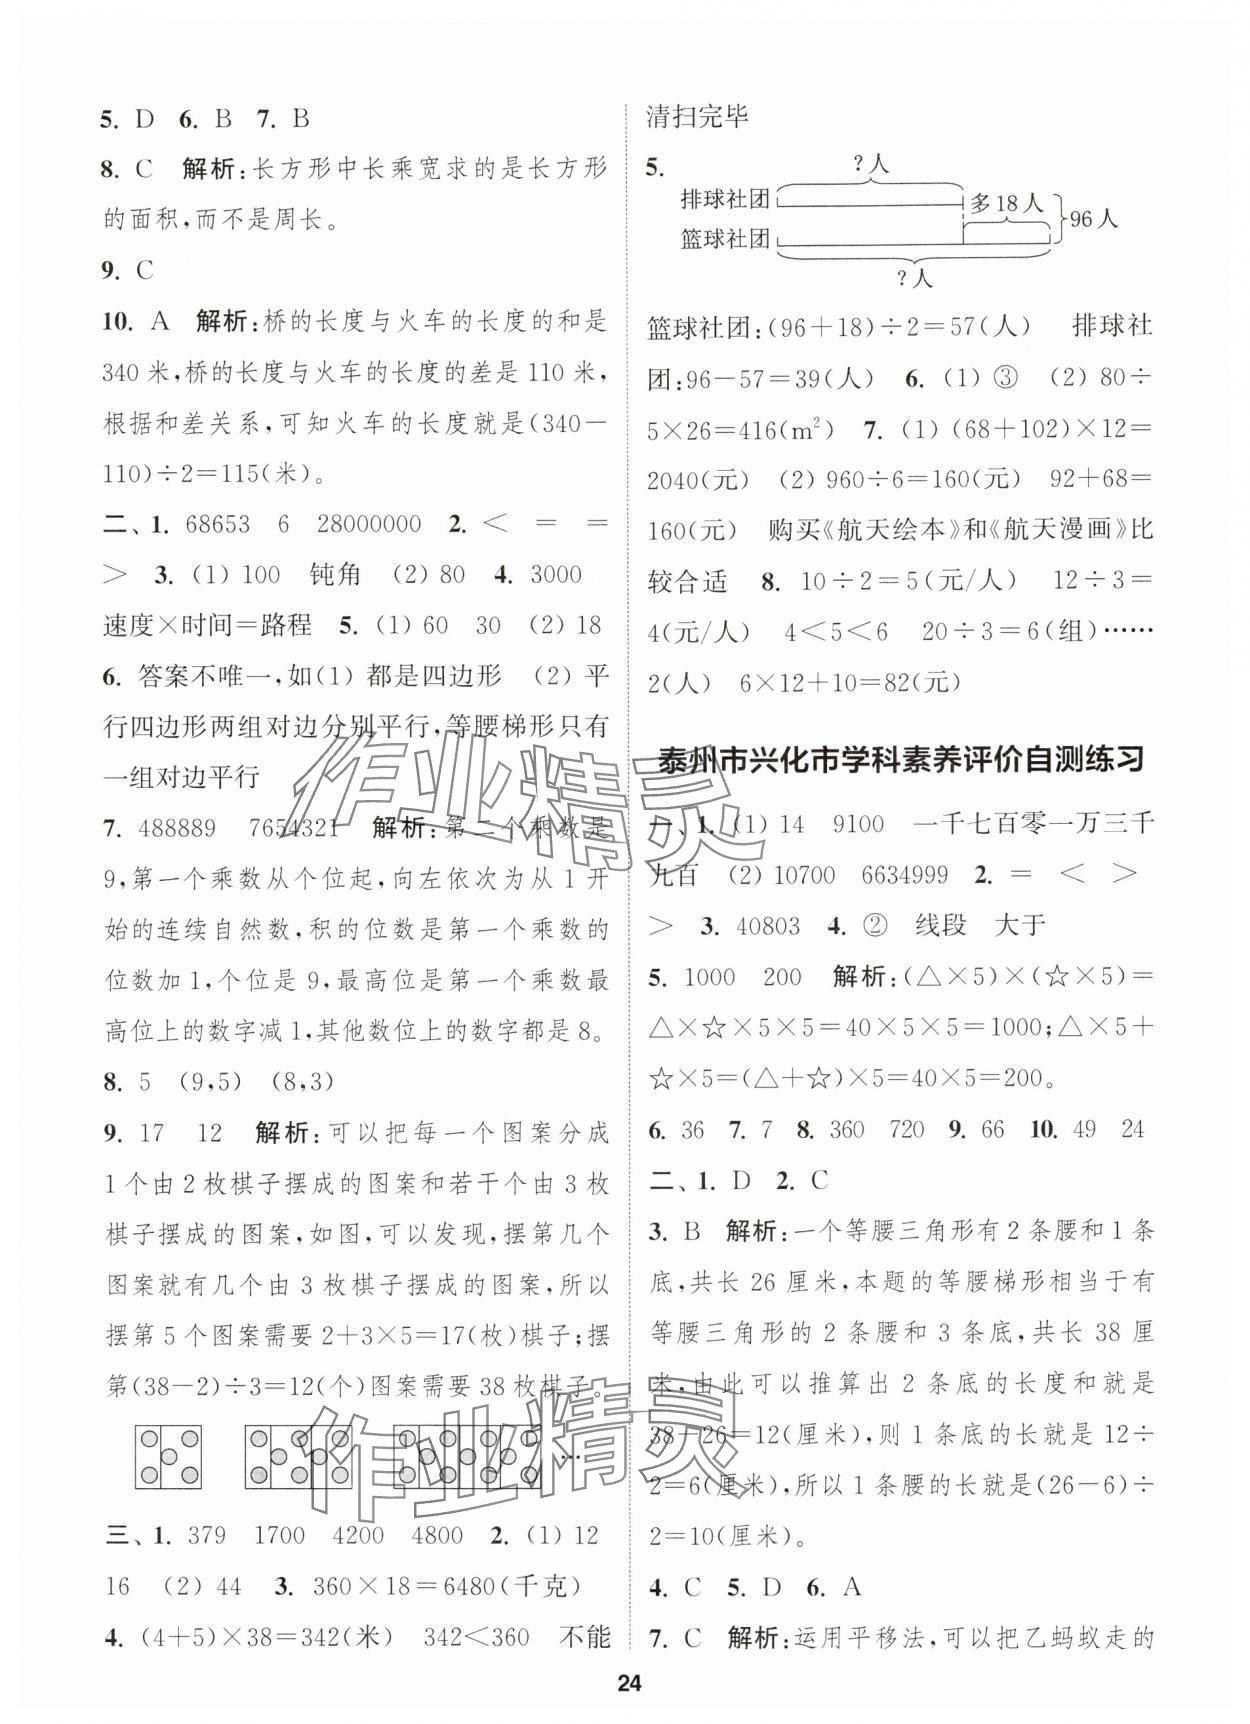 5. D 6. B 7. B
8. C 解析:长方形中长乘宽求的是长方形
的面积,而不是周长。
9. C
10. A 解析:桥的长度与火车的长度的和是
340米,桥的长度与火车的长度的差是110米,
根据和差关系,可知火车的长度就是(340-
110)÷2=115(米)。
二、1. 68653 6 28000000 2. < = =
> 3. (1) 100 钝角 (2) 80 4. 3000
速度×时间=路程 5. (1) 60 30 (2) 18
6. 答案不唯一,如(1) 都是四边形 (2) 平
行四边形两组对边分别平行,等腰梯形只有
一组对边平行
7. 488889 7654321 解析:第二个乘数是
9,第一个乘数从个位起,向左依次为从1开
始的连续自然数,积的位数是第一个乘数的
位数加1,个位是9,最高位是第一个乘数最
高位上的数字减1,其他数位上的数字都是8。
8. 5 (9,5) (8,3)
9. 17 12 解析:可以把每一个图案分成
1个由2枚棋子摆成的图案和若干个由3枚
棋子摆成的图案,如图,可以发现,摆第几个
图案就有几个由3枚棋子摆成的图案,所以
摆第5个图案需要2+3×5=17(枚)棋子;摆
第(38-2)÷3=12(个)图案需要38枚棋子。
…
三、1. 379 1700 4200 4800 2. (1) 12
16 (2) 44 3. 360×18=6480(千克)
4. (4+5)×38=342(米) 342<360 不能
清扫完毕
5.
?人
排球社团
多18人
96人
篮球社团
?人
篮球社团:(96+18)÷2=57(人) 排球社
团:96-57=39(人) 6. (1) ③ (2) 80÷
5×26=416(m²) 7. (1) (68+102)×12=
2040(元) (2) 960÷6=160(元) 92+68=
160(元) 购买《航天绘本》和《航天漫画》比
较合适 8. 10÷2=5(元/人) 12÷3=
4(元/人) 4<5<6 20÷3=6(组)……
2(人) 6×12+10=82(元)
泰州市兴化市学科素养评价自测练习
一、1. (1) 14 9100 一千七百零一万三千
九百 (2) 10700 6634999 2. = < >
> 3. 40803 4. ② 线段 大于
5. 1000 200 解析:(△×5)×(☆×5)=
△×☆×5×5=40×5×5=1000;△×5+
☆×5=(△+☆)×5=40×5=200。
6. 36 7. 7 8. 360 720 9. 66 10. 49 24
二、1. D 2. C
3. B 解析:一个等腰三角形有2条腰和1条
底,共长26厘米,本题的等腰梯形相当于有
等腰三角形的2条腰和3条底,共长38厘
米,由此可以推算出2条底的长度和就是
38-26=12(厘米),则1条底的长就是12÷
2=6(厘米),所以1条腰的长就是(26-6)÷
2=10(厘米)。
4. C 5. D 6. A
7. C 解析:运用平移法,可以把乙蚂蚁走的
作业精灵
作业精灵
24